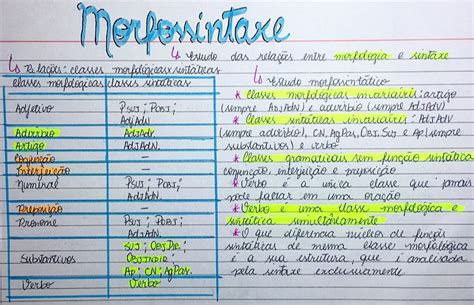 Morfossintaxe
↳ Estudo das relações entre morfologia e sintaxe
↳ Relações: classes morfológicas x sintáticas
classes morfológicas classes sintáticas
Adjetivo PSUJ; POBJ; AdjAdN
Advérbio AdjAdv
Artigo AdjAdN
Conjunção —
Interjeição —
Numeral PSUJ; POBJ; AdjAdN
Preposição —
Pronome PSUJ; POBJ; AdjAdN
Substantivos SUJ; ObjDir; ObjIndir; Ap; CN; AgPas
Verbo Verbo
↳ Estudo morfossintático
* Classes morfológicas invariáveis: artigo
(sempre AdjAdN) e advérbio (sempre AdjAdv)
* Classes sintáticas invariáveis: AdjAdv
(sempre advérbio), CN, AgPas, Obj, Suj e Ap (sempre
substantivos) e verbo
* Classes gramaticais sem função sintática:
conjunção, interjeição e preposição
* Verbo é a única classe que jamais
pode faltar em uma oração
* Verbo é uma classe morfológica e
sintática simultaneamente
* O que diferencia núcleos de função
sintáticas de mesma classe morfológica
é a sua estrutura, que é analisada
pela sintaxe exclusivamente